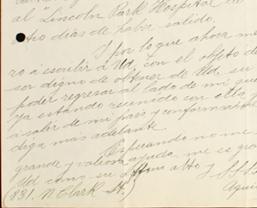 al Lincoln Park Hospital de
otro dias de haber salido.
I por lo que ahora me
ro á escribir á Ud, con el objeto de
ser digno de obtener de Ud. su
poder regresar al lado de mi
ya estando reunido con ella,
a salir de mi pais y conformarme
diga más adelante
Esperando no me
grande y valiosa ayuda, me es gra
Ud como su Atto y S.S.
831. N Clark St.